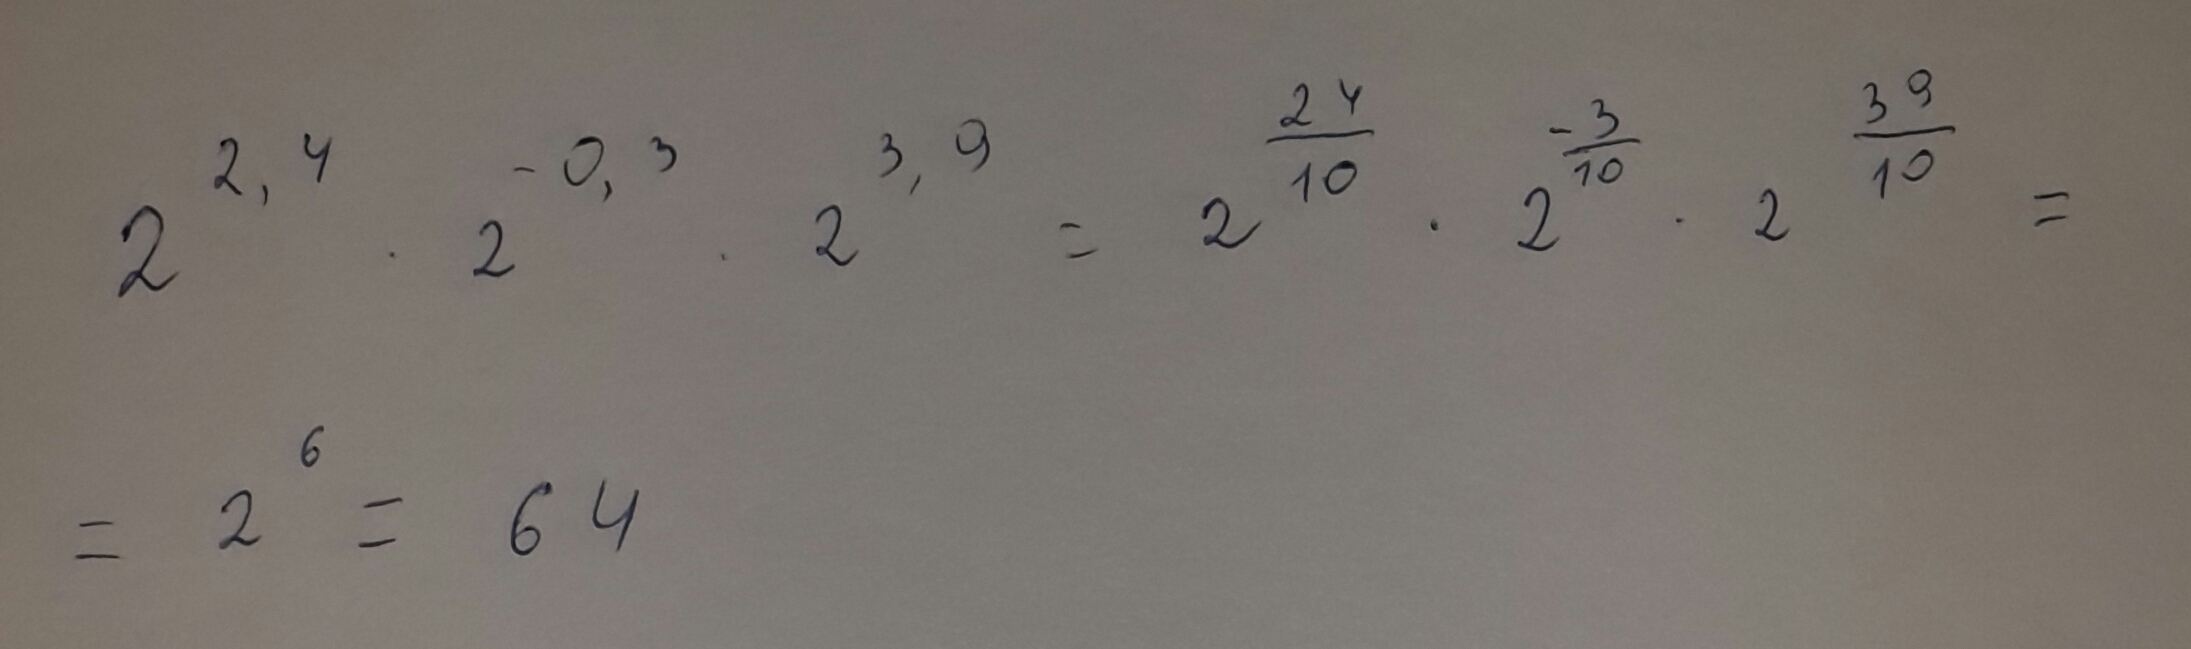 2^{2,4} · 2^{-0,3} · 2^{3,9} = 2^{\frac{24}{10}} · 2^{\frac{-3}{10}} · 2^{\frac{39}{10}} =
= 2^6 = 64